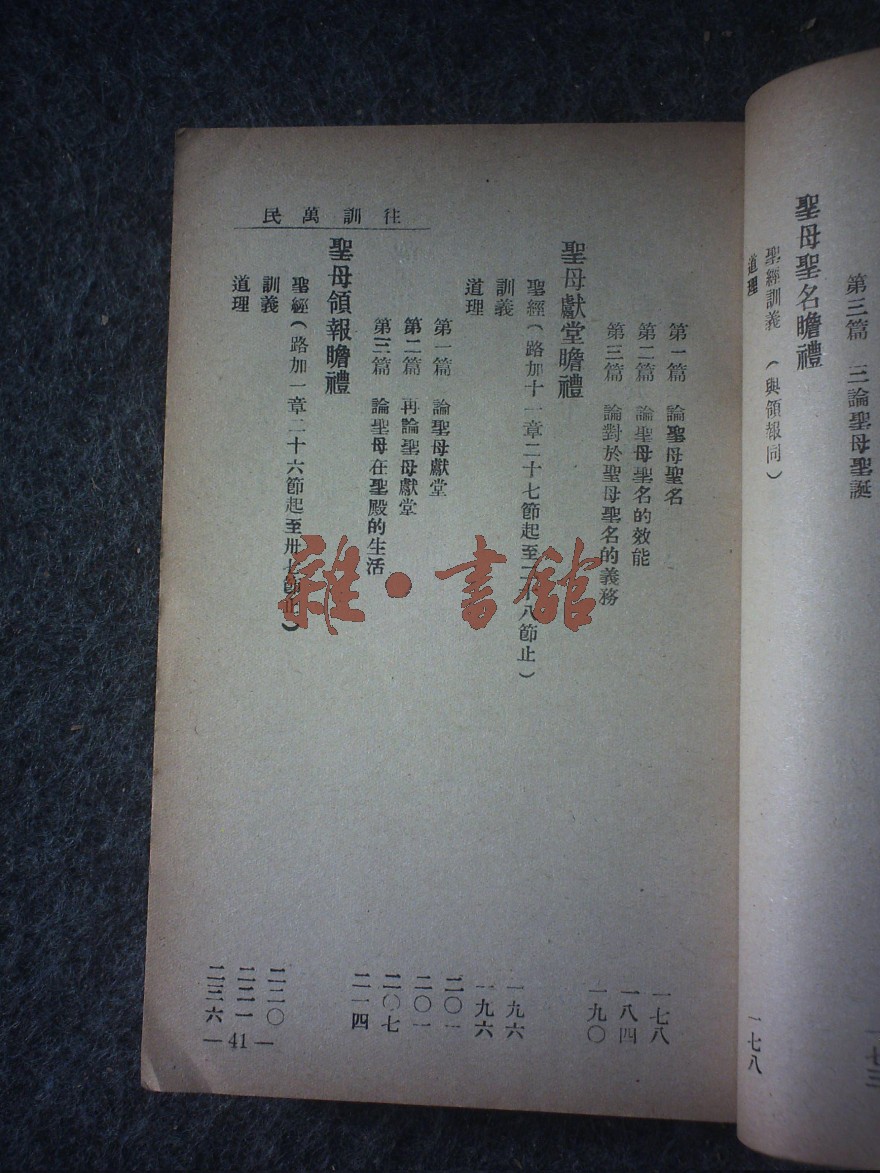 第三篇　三論聖母聖誕　一七三
聖母聖名瞻禮
聖經訓義　(與領報同)
道理　一七八
第一篇　論聖母聖名　一七八
第二篇　論聖母聖名的效能　一八四
第三篇　論對於聖母聖名的義務　一九〇
聖母獻堂瞻禮
聖經(路加十一章二十七節起至二十八節止)　一九六
訓義　一九六
道理　二〇一
第一篇　論聖母獻堂　二〇一
第二篇　再論聖母獻堂　二〇七
第三篇　論聖母在聖殿的生活　二一四
聖母領報瞻禮
聖經(路加一章二十六節起至卅七節止)　二二〇
訓義　二二一
道理　二三六
往訓萬民
— 41 —
雜·書館